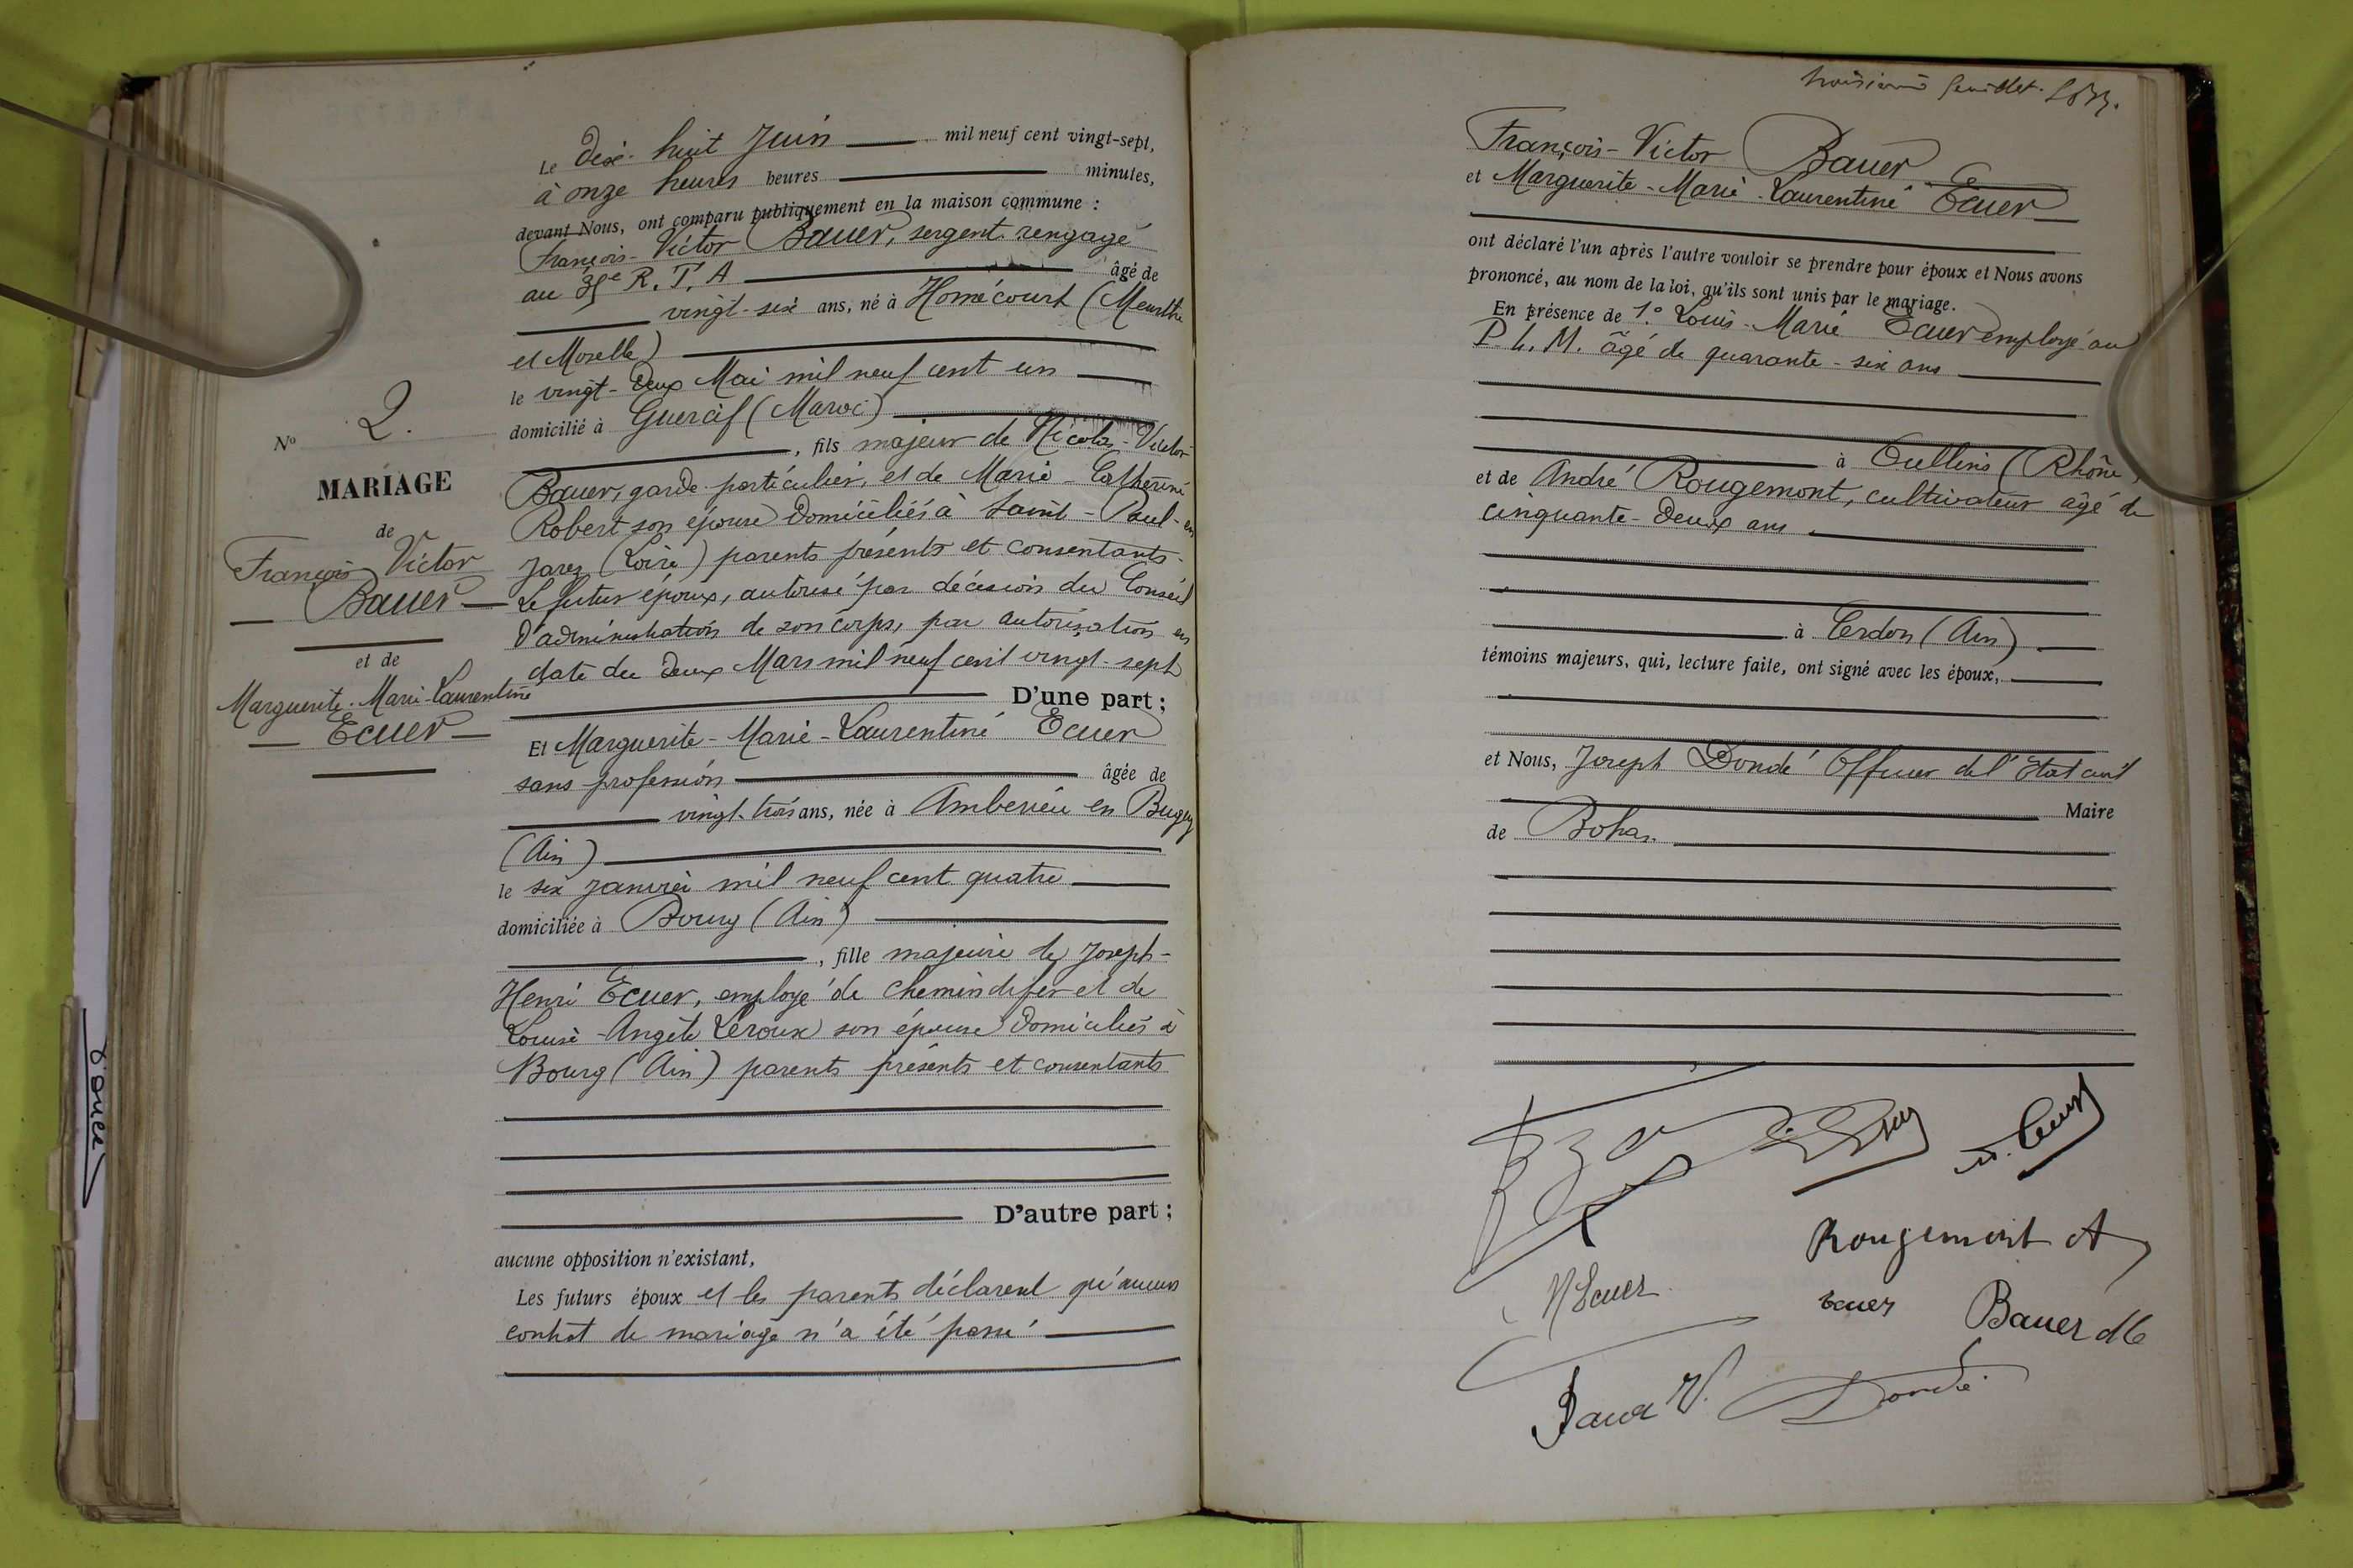 Le dix-huit Juin mil neuf cent vingt-sept,
à onze heures heures minutes,
devant Nous, ont comparu publiquement en la maison commune :
François-Victor Bauer, sergent rengagé
au R. T. A âgé de
vingt-six ans, né à Homécourt (Meurthe
et Moselle)
le vingt-deux Mai mil neuf cent un
domicilié à Guercif (Maroc)
, fils majeur de Nicolas-Victor
Bauer, garde particulier, et de Marie-Catherine
Robert son épouse domiciliés à Saint-Paul-en
Jarez (Loire) parents présents et consentants.
Le futur époux, autorisé par décision du Conseil
d'administration de son corps, par autorisation en
date du deux Mars mil neuf cent vingt-sept
D'une part ;
Et Marguerite-Marie-Laurentine Ecuer
sans profession âgée de
vingt-trois ans, née à Amberieu en Bugey
(Ain)
le six janvier mil neuf cent quatre
domiciliée à Bourg (Ain)
, fille majeure de Joseph-
Henri Ecuer, employé de chemin de fer et de
Louise-Angèle Leroux son épouse domiciliés à
Bourg (Ain) parents présents et consentants
D'autre part ;
aucune opposition n'existant,
Les futurs époux et les parents déclarent qu'aucun
contrat de mariage n'a été passé
No 2.
MARIAGE
de
François Victor
Bauer
et de
Marguerite-Marie-Laurentine
Ecuer
troisième feuillet.
François-Victor Bauer
et Marguerite-Marie-Laurentine Ecuer
ont déclaré l'un après l'autre vouloir se prendre pour époux et Nous avons
prononcé, au nom de la loi, qu'ils sont unis par le mariage.
En présence de 1.° Louis-Marie Ecuer employé au
P. L. M. âgé de quarante-six ans
à Oullins (Rhône)
et de André Rougemont, cultivateur âgé de
cinquante-deux ans
à Cerdon (Ain)
témoins majeurs, qui, lecture faite, ont signé avec les époux,
et Nous, Joseph Dondé Officier de l'Etat civil
Maire
de Bohas.
Rougemont A
H Ecuer
Ecuer
Bauer
Bauer V.
Dondé